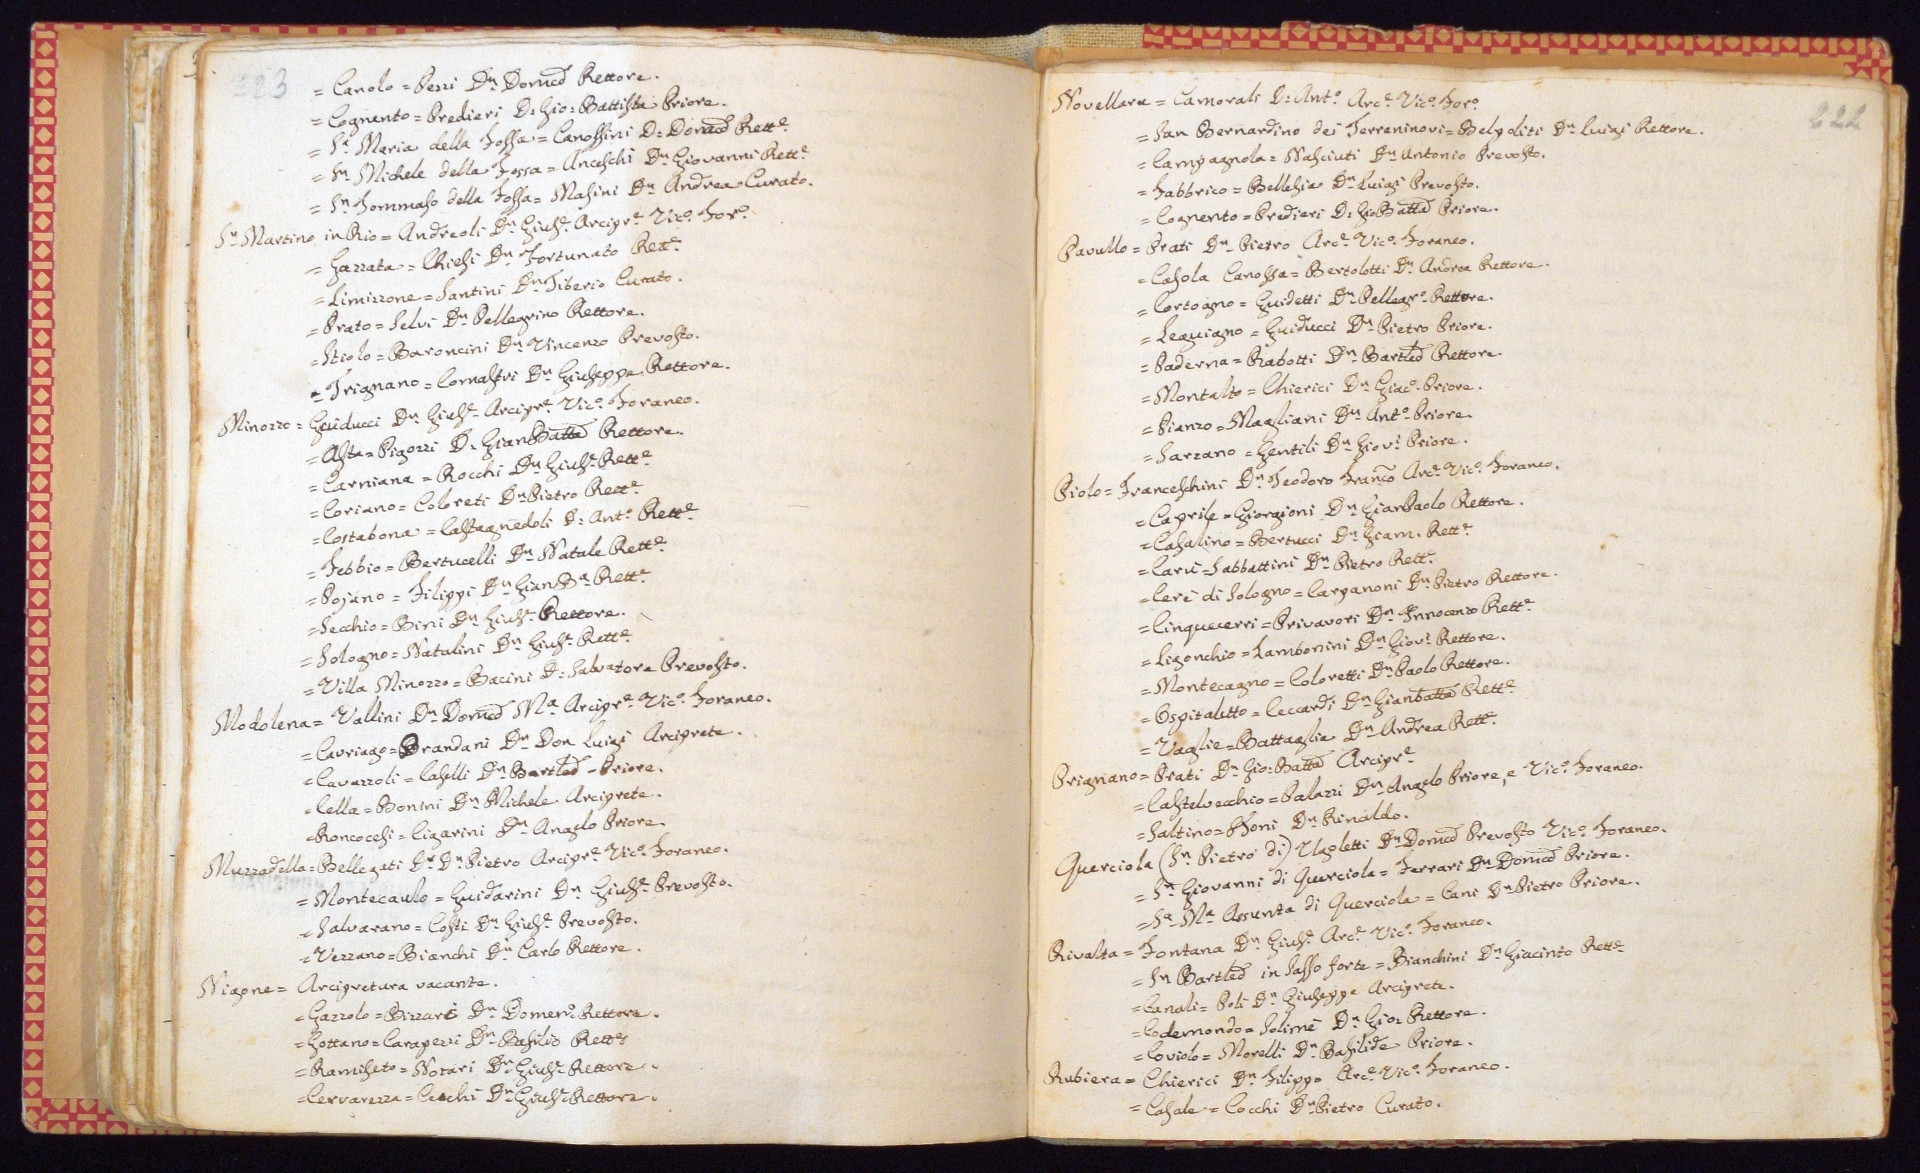 223
= Canolo = Perri Dn Domco Rettore.
= Cognento = Predieri D: Gio: Battista Priore.
= Sa Maria della Fossa = Canossini D: Domco Rette
= Sn Michele della Fossa = Anceschi Dn Giovanni Rette
= Sn Tommaso della Fossa = Masini Dn Andrea Curato.
Sn Martino in Rio = Andreoli Dn Giuse Arcipre Vico Foro.
= Gazzata = Chiesi Dn Fortunato Rette
= Limizzone = Santini Dn Tiberio Curato.
= Prato = Selvi Dn Pellegrino Rettore.
= Stiolo = Baroncini Dn Vincenzo Prevosto.
= Trignano = Cornastri Dn Giuseppe Rettore.
Minozzo = Guiducci Dn Giuse Arcipre Vico Foraneo.
= Asta = Pigozzi D: GianBatta Rettore.
= Carniana = Rocchi Dn Giuse Rette
= Coriano = Coloreti Dn Pietro Rette
= Costabona = Castagnedoli D: Anto Rette
= Febbio = Bertucelli Dn Natale Rette
= Pojano = Filippi Dn GianBa Rette
= Secchio = Bini Dn Giuse Rettore.
= Sologno = Natalini Dn Giuse Rette
= Villa Minozzo = Bacini D: Salvatore Prevosto.
Modolena = Vallini Dn Domco Ma Arcipre Vico Foraneo.
= Cavriago = Brandani Dn Don Luigi Arciprete.
= Cavazzoli = Caselli Dn Bartleo - Priore.
= Cella = Bonini Dn Michele Arciprete.
= Roncocesi = Cigarini Dn Angelo Priore.
Muzzadella = Bellegati Dn Pietro Arcipre Vico Foraneo.
= Montecaulo = Guidarini Dn Giuse Prevosto.
= Salvarano = Costi Dn Giuse Prevosto.
= Vezzano = Bianchi Dn Carlo Rettore.
Nigone = Arcipretura vacante.
= Gazzolo = Bizzari Dn Domeno Rettore.
= Gottano = Caraperzi Dn Basilio Rette
= Ramiseto = Notari Dn Giuse Rettore.
= Cervarezza = Cecchi Dn Giuse Rettore.
222
Novellara = Camorali D: Anto Arce Vico Foro.
= San Bernardino dei Terreninovi = Belpoliti Dn Luigi Rettore.
= Campagnola = Nasciuti Dn Antonio Prevosto.
= Fabbrico = Bellesia Dn Luigi Prevosto.
= Cognento = Predieri D: GioBatta Priore.
Pavullo = Prati Dn Pietro Arce Vico Foraneo.
= Casola Canossa = Bertolotti Dn Andrea Rettore.
= Cortogno = Guidetti Dn Pellegro Rettore.
= Leguigno = Guiducci Dn Pietro Priore.
= Paderna = Rabotti Dn Bartleo Rettore.
= Montalto = Chierici Dn Giaco. Priore.
= Pianzo = Magliani Dn Anto Priore.
= Sarzano = Gentili Dn Giovi Priore.
Piolo = Franceschini Dn Teodoro Franco Arce Vico Foraneo.
= Caprile = Giorgioni Dn GianPaolo Rettore.
= Casalino = Bertucci Dn Giam. Rette
= Carù = Sabbattini Dn Pietro Rette
= Cerè di Sologno = Carpanoni Dn Pietro Rettore.
= Cinquecerri = Privavori Dn Innocenzo Rette
= Ligonchio = Lambonini Dn Giovi Rettore.
= Montecagno = Coloretti Dn Paolo Rettore.
= Ospitaletto = Ceccardi Dn Gianbatta Rette
= Vaglie = Battaglia Dn Andrea Rette
Prignano = Prati Dn Gio: Batta Arcipre
= Castelvecchio = Palazzi Dn Angelo Priore, e Vico Foraneo.
= Saltino = Rsoni Dn Rinaldo.
Querciola (Sn Pietro di) Ugoletti Dn Domco Prevosto Vico Foraneo.
= Sn Giovanni di Querciola = Ferrari Dn Domco Priore.
= Sa Ma Assunta di Querciola = Cani Dn Pietro Priore.
Rivalta = Fontana Dn Giuse Arce Vico Foraneo.
= Sn Bartleo in Sasso forte = Bianchini Dn Giacinto Rette
= Canali = Poli Dn Giuseppe Arciprete.
= Codemondo = Solimè Dn Gio: Rettore.
= Coviolo = Morelli Dn Basilide Priore.
Rubiera = Chierici Dn Filippo Arce Vico Foraneo.
= Casale = Cocchi Dn Pietro Curato.